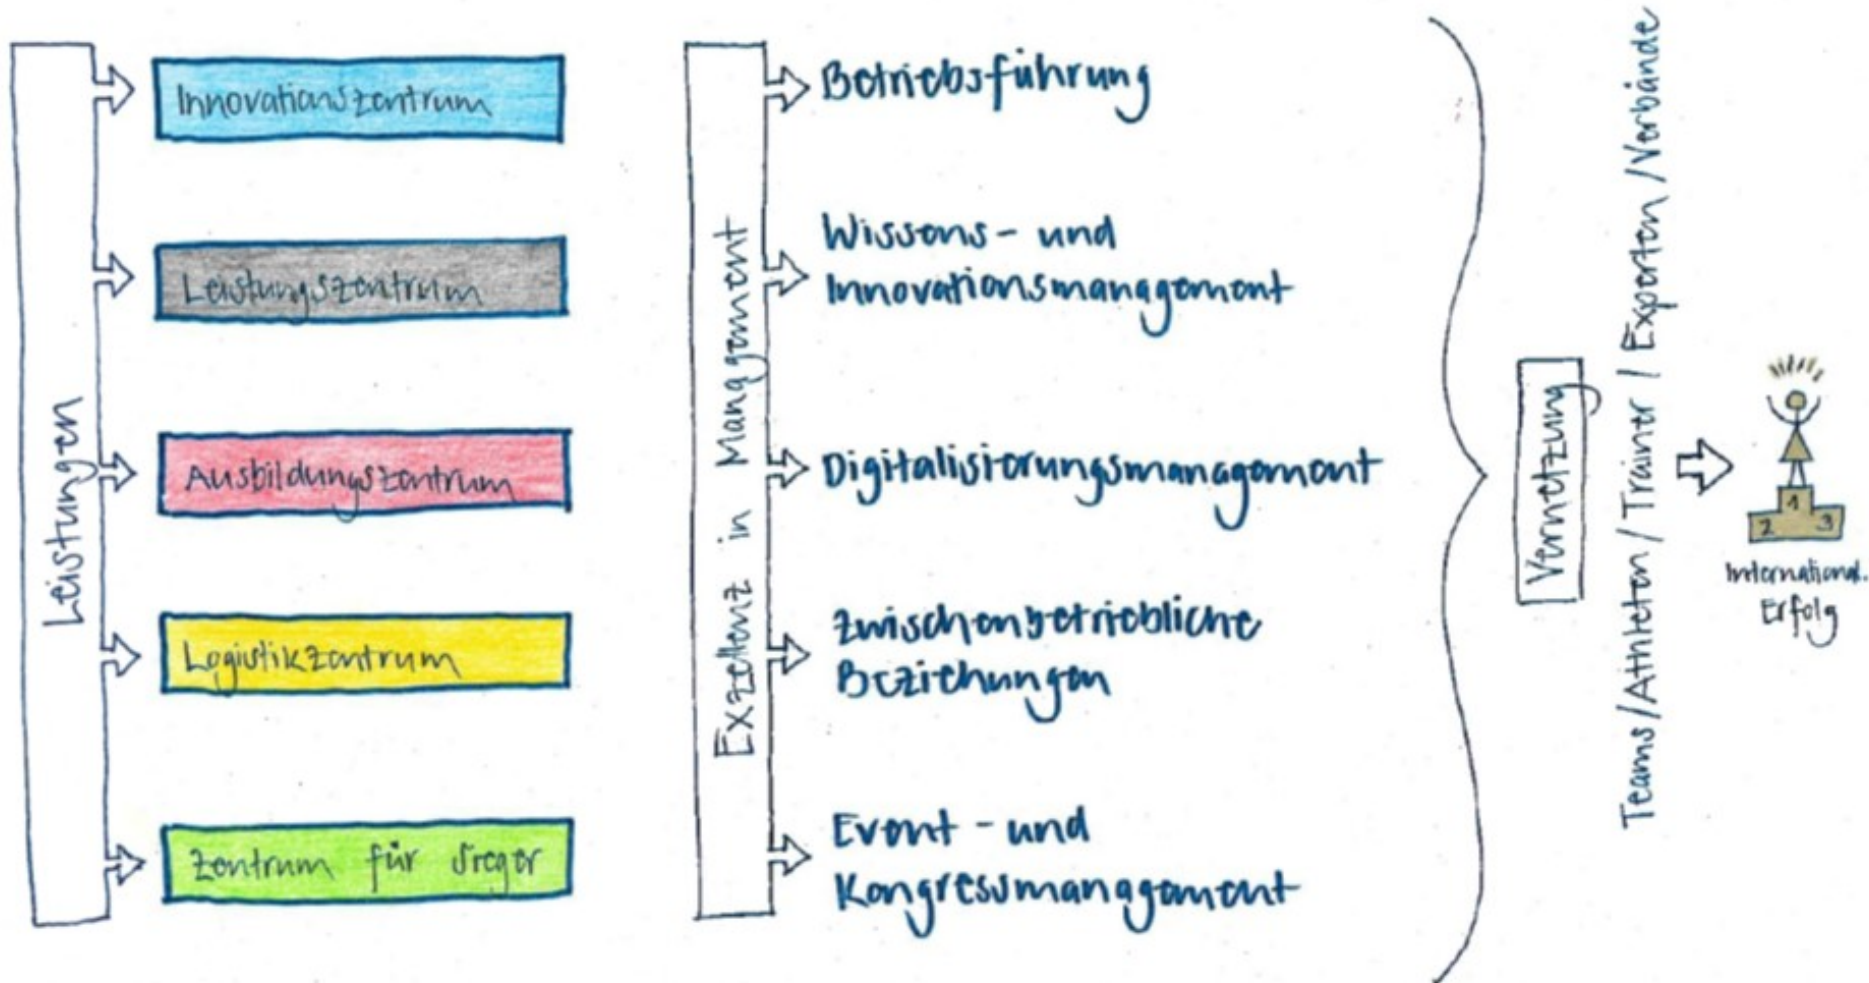 Leistungen
Innovationszentrum
Leistungszentrum
Ausbildungszentrum
Logistikzentrum
Zentrum für Sieger
Exzellenz in Management
Betriebsführung
Wissens- und
Innovationsmanagement
Digitalisierungsmanagement
Zwischenbetriebliche
Beziehungen
Event- und
Kongressmanagement
Vernetzung
Teams/Athleten/Trainer/Experten/Verbände
1
2 3
International.
Erfolg